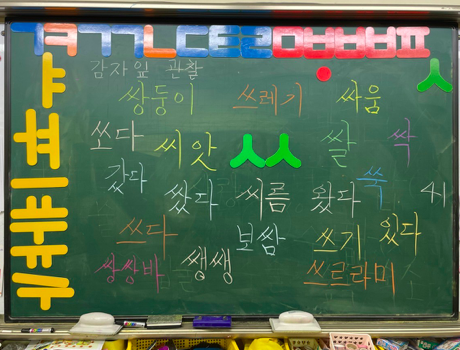 ㄱㅋㄲㄴㄷㅌㄹㅁㅂㅃㅍ
ㅅ
감자잎 관찰
쌍둥이 쓰레기 싸움
쏘다 씨앗 ㅆ 쌀 싹
갔다 쌌다 씨름 왔다 쑥
쓰다 보쌈 쓰기 있다
쌍쌍바 쌩쌩 쓰르라미